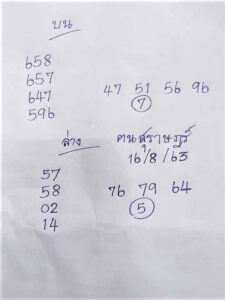 บน
658
657
647
596
47 51 56 96
7
ล่าง
คนสุราษฎร์
16/8/63
57
58
02
14
76 79 64
5